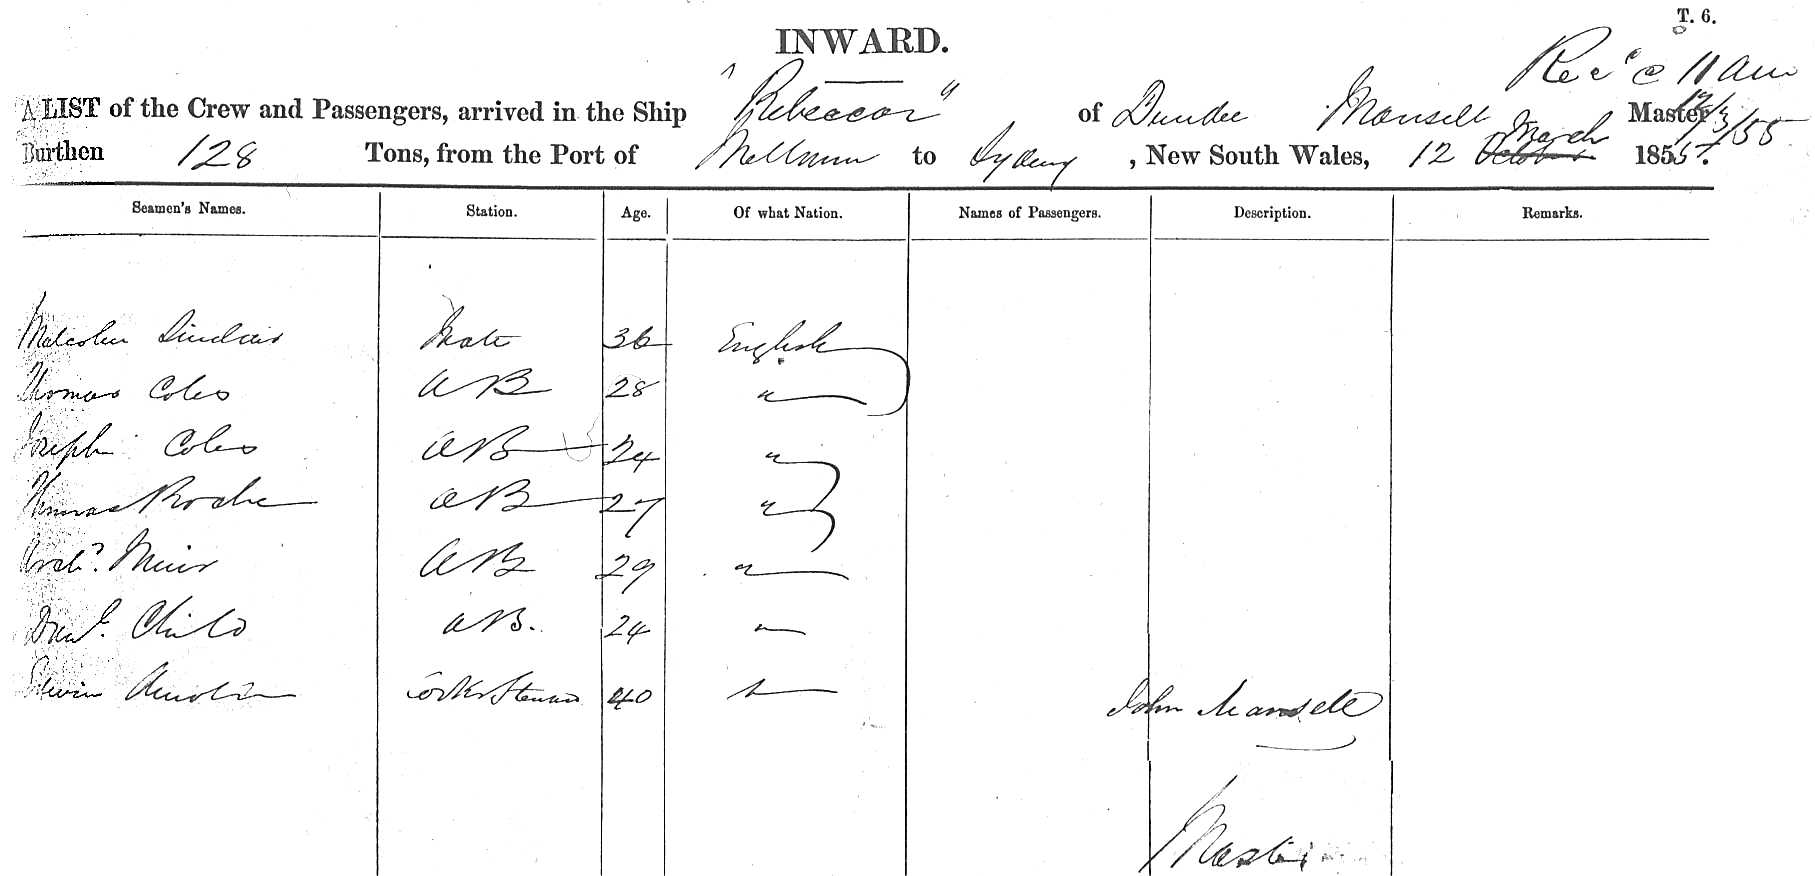 T. 6.
INWARD.
Recd @ 11 am
12/3/55
A LIST of the Crew and Passengers, arrived in the Ship "Rebecca" of Dundee Mansell Master
Burthen 128 Tons, from the Port of Melbourne to Sydney, New South Wales, 12 March 1855.
Seamen's Names. Station. Age. Of what Nation. Names of Passengers. Description. Remarks.
Malcolm Sinclair Mate 36 English
Thomas Coles AB 28 "
Joseph Coles AB 24 "
Thomas Roche AB 27 "
Archd. Muir AB 29 "
Danl. Child AB. 24 "
Edwin Cook & Steward 40 "
John Mansell
Master